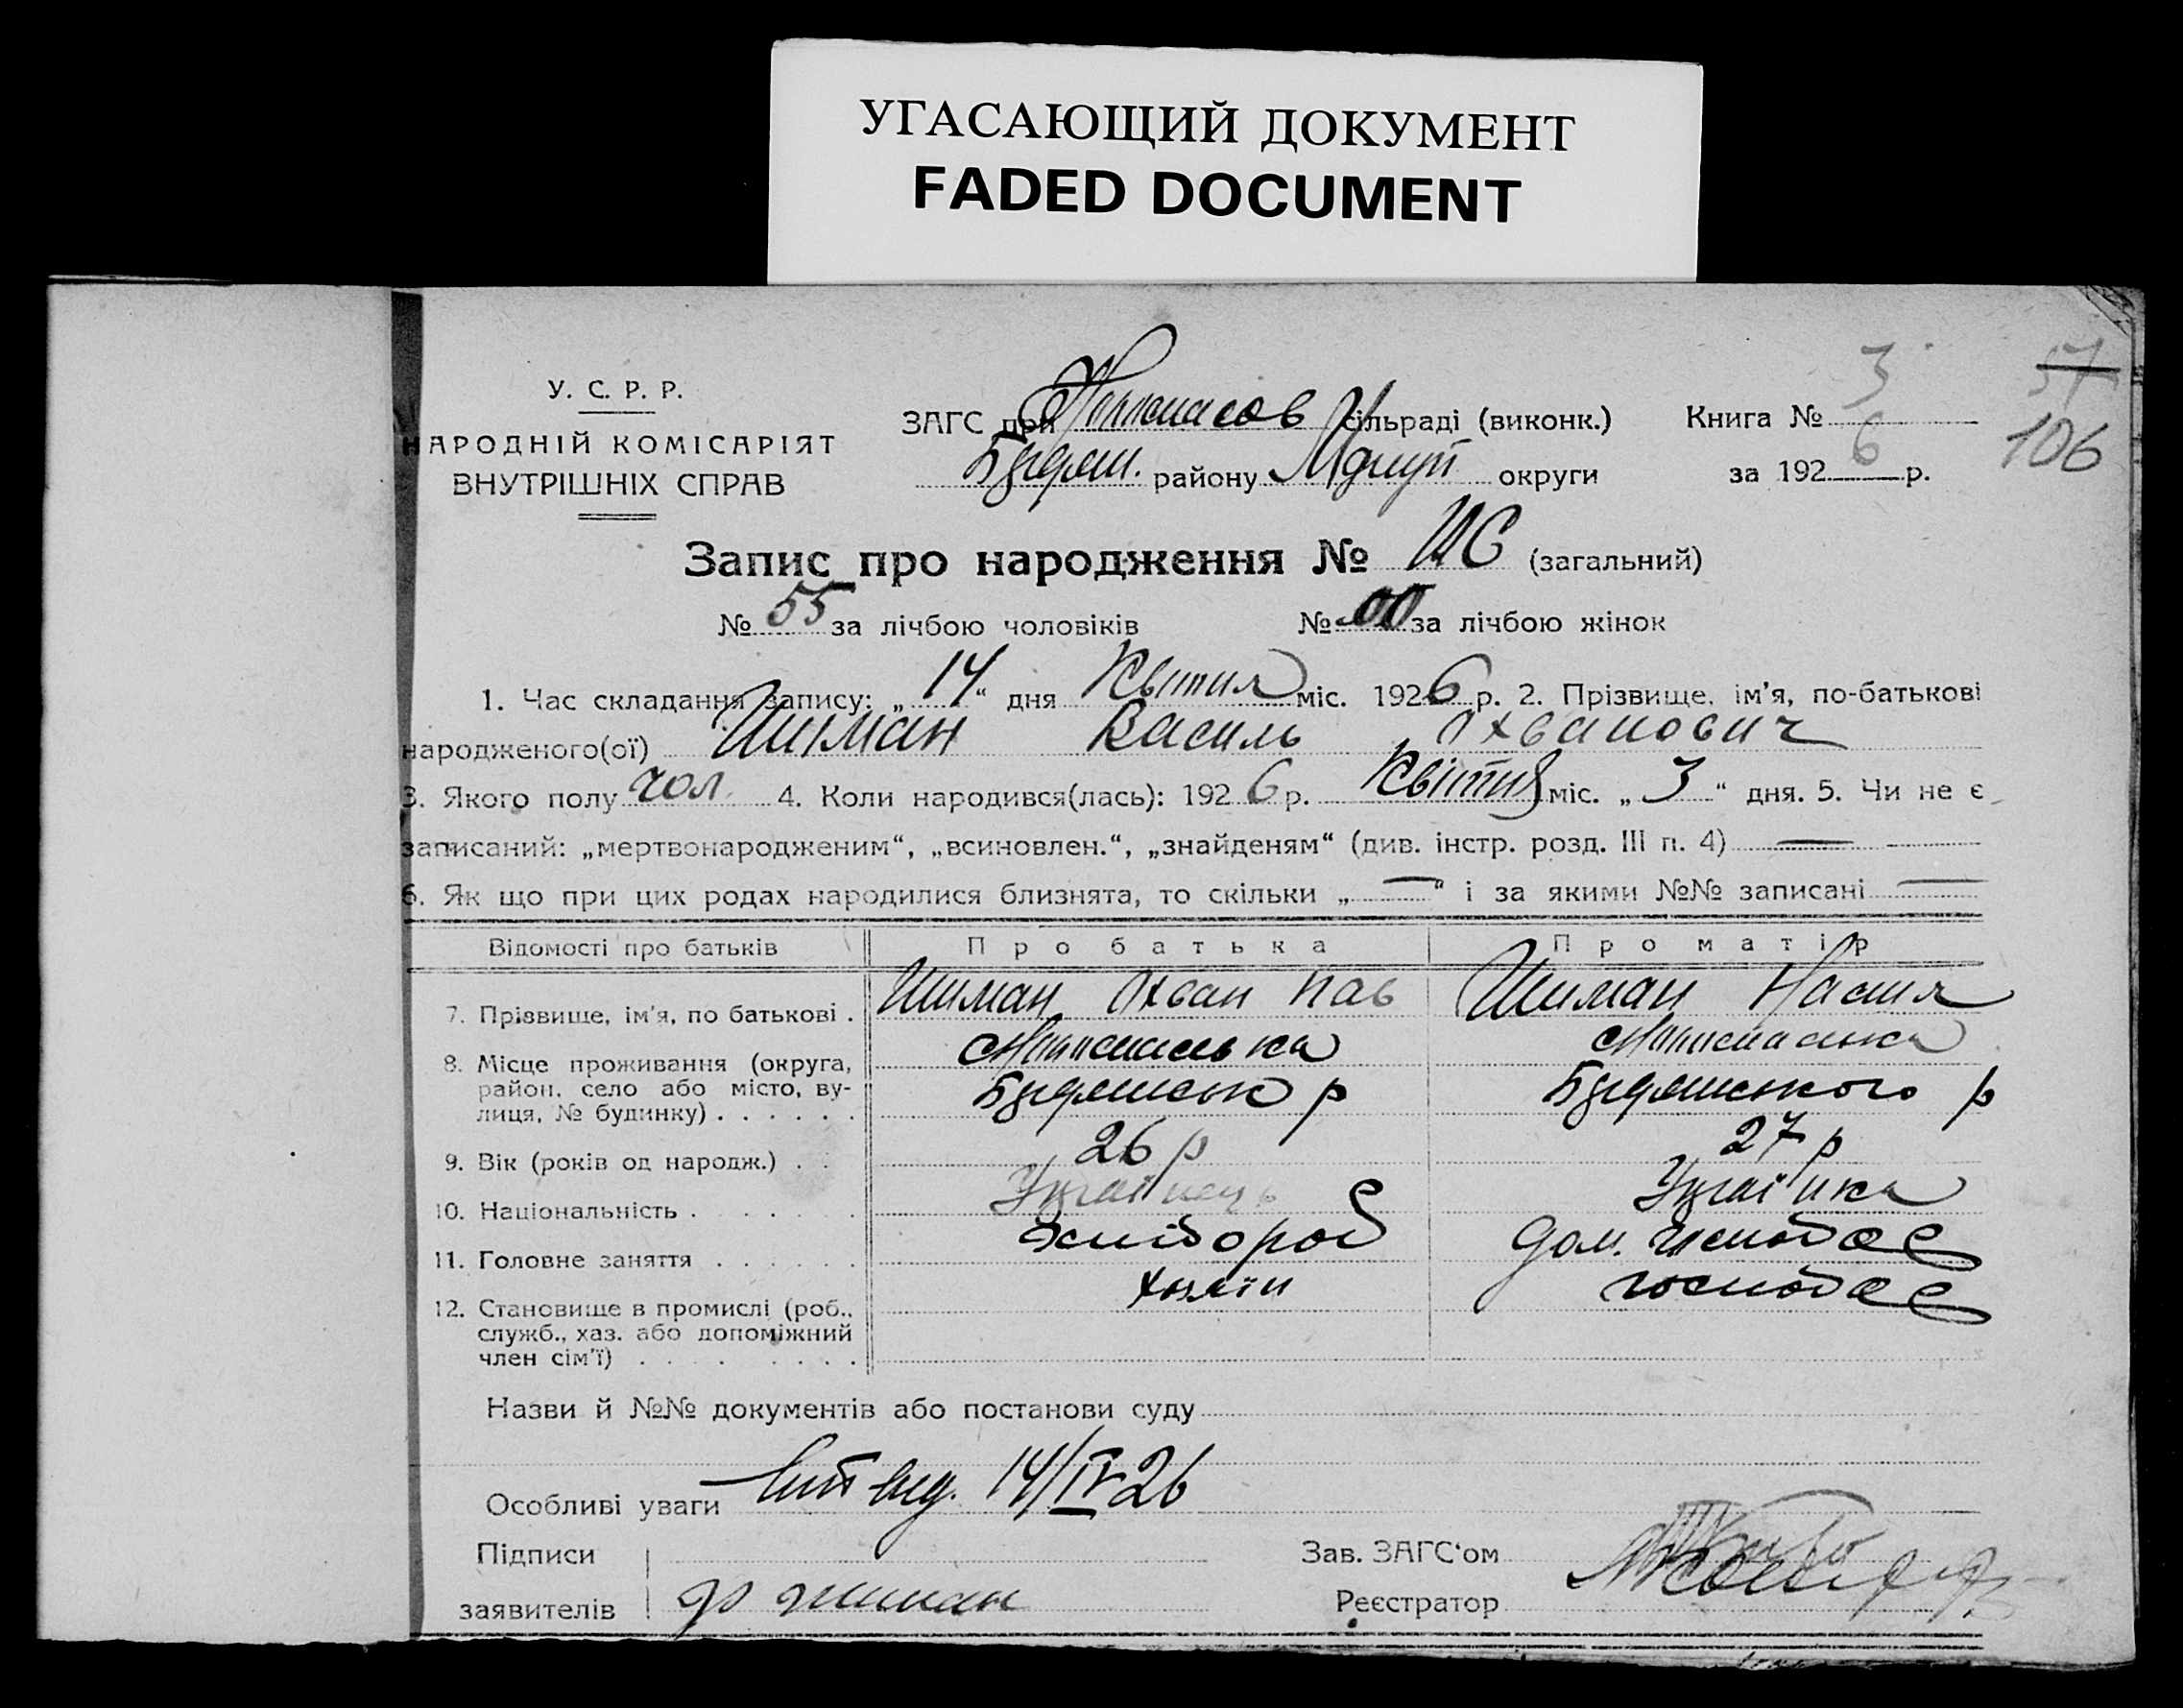 УГАСАЮЩИЙ ДОКУМЕНТ
FADED DOCUMENT
3
57
У. С. Р. Р.
ЗАГС при сільраді (виконк.) Книга №
106
НАРОДНІЙ КОМІСАРІЯТ
ВНУТРІШНІХ СПРАВ
Будян. району округи за 1926 р.
Запис про народження № (загальний)
№ 55 за лічбою чоловіків № 00 за лічбою жінок
1. Час складання запису: „14“ дня Квітня міс. 1926 р. 2. Прізвище, ім'я, по-батькові
народженого(ої) Шиман Василь
3. Якого полу чол 4. Коли народився(лась): 1926 р. Квітня міс. „3“ дня. 5. Чи не є
записаний: „мертвонародженим“, „всиновлен.“, „знайденям“ (див. інстр. розд. III п. 4) —
6. Як що при цих родах народилися близнята, то скільки „—“ і за якими №№ записані —
Відомості про батьків Про батька Про матір
7. Прізвище, ім'я, по батькові . Шиман Пав Шиман Настя
8. Місце проживання (округа,
район, село або місто, ву- Будянськ р Будянського р
лиця, № будинку) . . . . . .
9. Вік (років од народж.) . . 26 р 27 р
10. Національність . . . . . . Українець Українка
11. Головне заняття . . . . . . хлібороб дом. господар
12. Становище в промислі (роб., хазяїн господар
служб., хаз. або допоміжний
член сім'ї) . . . . . . . .
Назви й №№ документів або постанови суду
Особливі уваги Вит вид. 14/IV 26
Підписи Зав. ЗАГС'ом
заявителів шиман Реєстратор